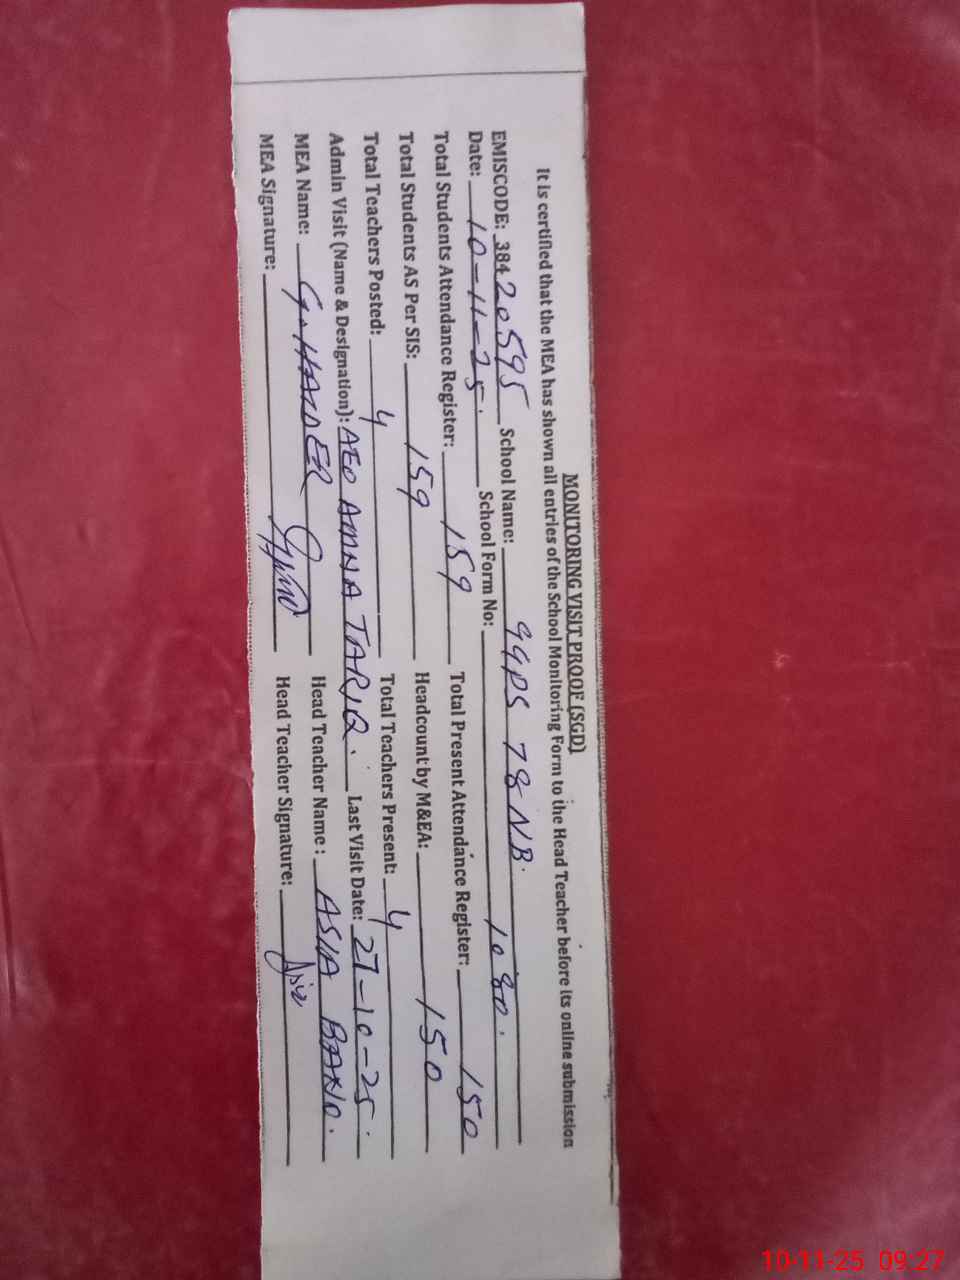 MONITORING VISIT PROOF (SGD)
It is certified that the MEA has shown all entries of the School Monitoring Form to the Head Teacher before its online submission
EMISCODE: 38420595 School Name: GGPS 78 NB.
Date: 10-11-25. School Form No: 1080.
Total Students Attendance Register: 159 Total Present Attendance Register: 150
Total Students AS Per SIS: 159 Headcount by M&EA: 150
Total Teachers Posted: 4 Total Teachers Present: 4
Admin Visit (Name & Designation): AEO AMNA TARIQ. Last Visit Date: 27-10-25.
MEA Name: G. HAIDER Head Teacher Name: ASIA BANO.
MEA Signature: Head Teacher Signature:
10-11-25 09:27